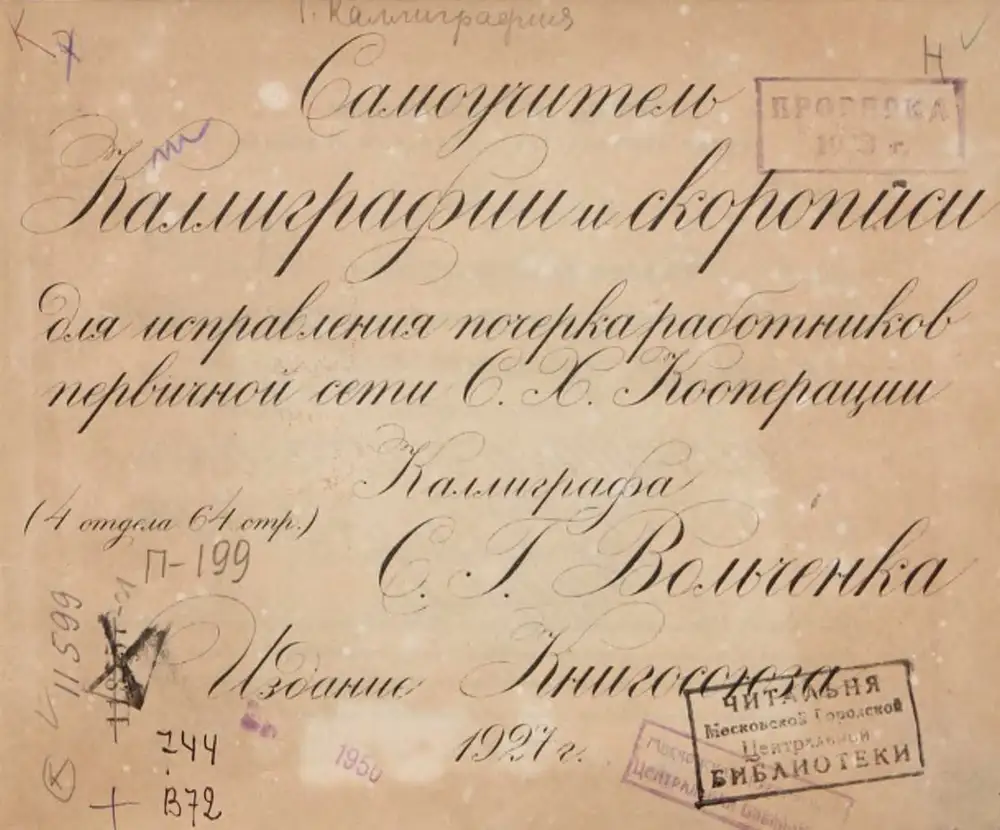 Г. Каллиграфия
К
Н
Самоучитель
ПРОВЕРКА
Каллиграфии и скорописи
для исправления почерка работников
первичной сети С. Х. Кооперации
Каллиграфа
(4 отдела 64 стр.)
С. Г. Вольченка
П-199
11599
Издание Книгосоюза
1927 г.
1950
ЧИТАЛЬНЯ
Московской Городской
Центральной
БИБЛИОТЕКИ
744
В72